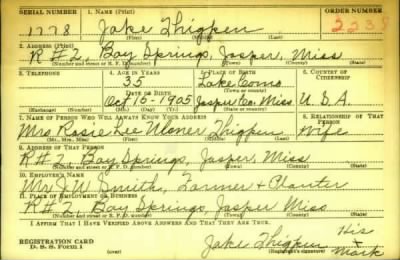 SERIAL NUMBER 1. NAME (Print) ORDER NUMBER
1778 Jake Thigpen 2239
2. ADDRESS (Print)
R#2, Bay Springs, Jasper, Miss
(Number and street or R. F. D. number) (Town) (County) (State)
3. TELEPHONE 4. AGE IN YEARS 5. PLACE OF BIRTH 6. COUNTRY OF CITIZENSHIP
35 Lake Como
DATE OF BIRTH (Town or county)
Oct 15-1905 Jasper Co. Miss. U.S.A.
(Exchange) (Number) (Mo.) (Day) (Yr.) (State or country)
7. NAME OF PERSON WHO WILL ALWAYS KNOW YOUR ADDRESS 8. RELATIONSHIP OF THAT PERSON
Mrs Rosie Lee Thigpen, Wife
(Mr., Mrs., Miss) (First) (Middle) (Last)
9. ADDRESS OF THAT PERSON
R#2, Bay Springs, Jasper, Miss
(Number and street or R. F. D. number) (Town) (County) (State)
10. EMPLOYER'S NAME
Mr J.W. Smith, Farmer + Planter
11. PLACE OF EMPLOYMENT OR BUSINESS
R#2, Bay Springs, Jasper Miss
(Number and street or R. F. D. number) (Town) (County) (State)
I AFFIRM THAT I HAVE VERIFIED ABOVE ANSWERS AND THAT THEY ARE TRUE.
REGISTRATION CARD His
D. S. S. FORM 1 (over) Jake Thigpen x
Mark